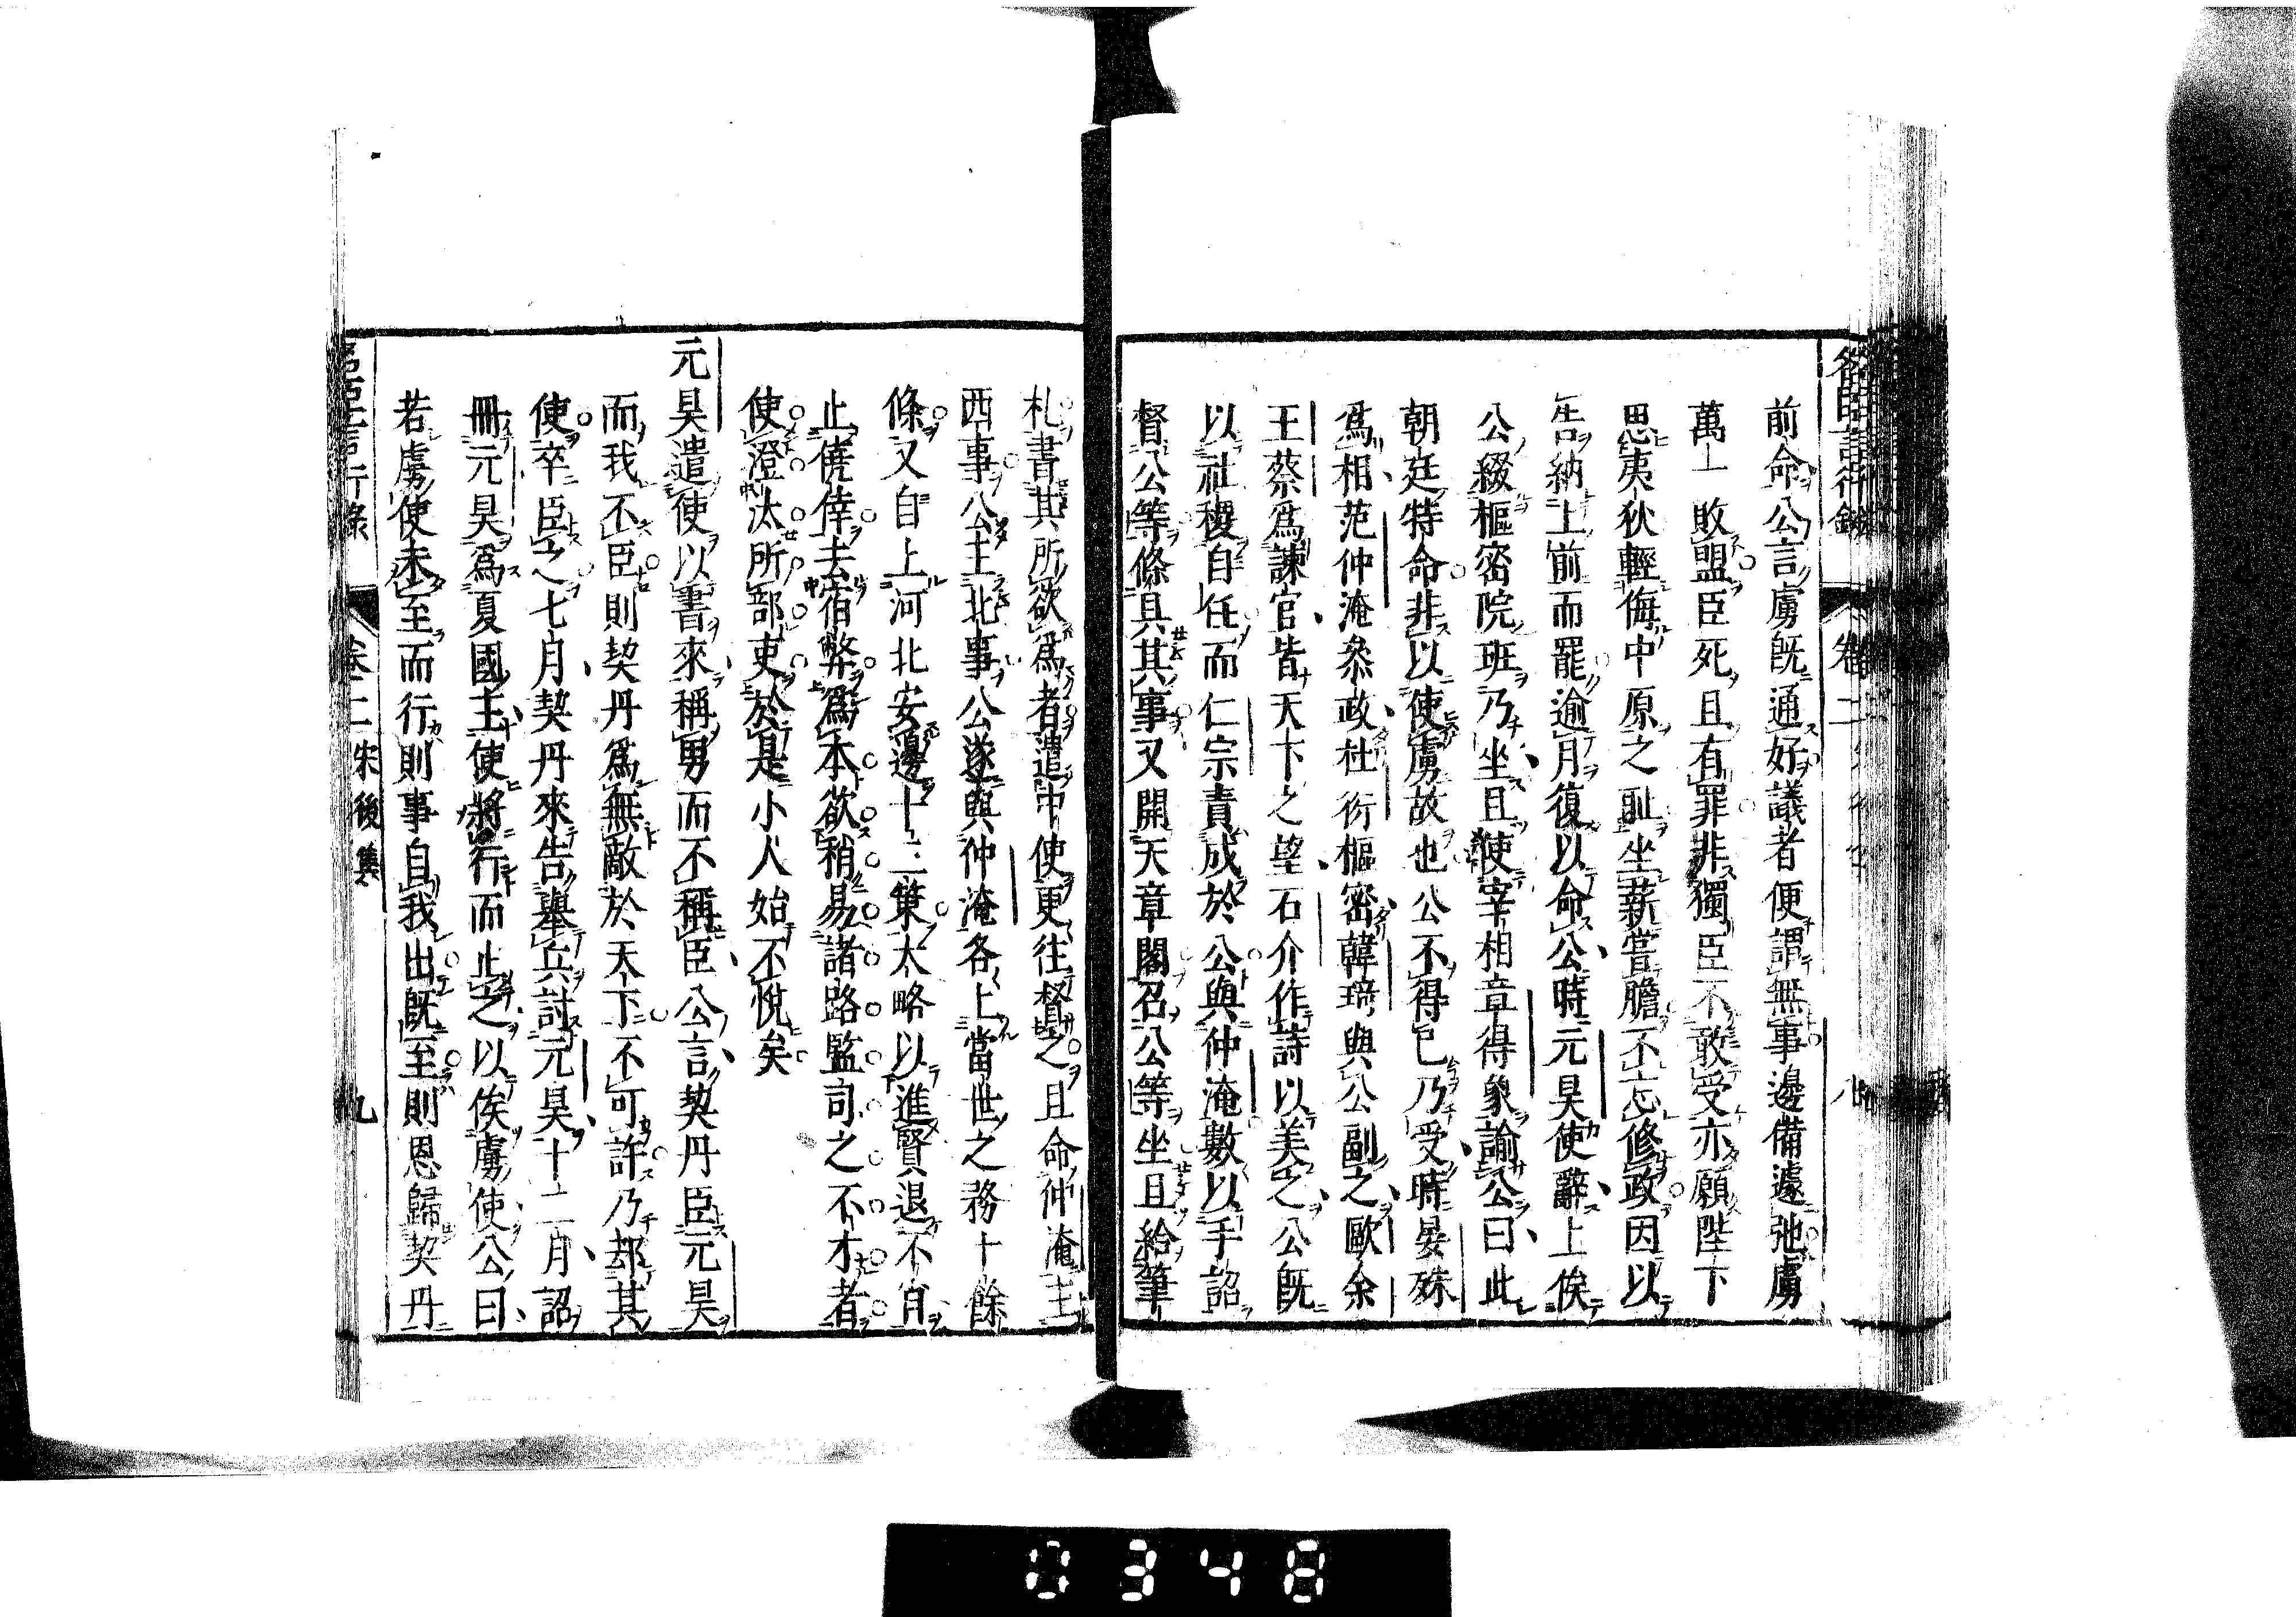 名臣言行錄 卷二
前命公言虜既通好議者便謂無事邊備遽弛虜
萬一敗盟臣死且有罪非獨臣不敢受亦願陛下
思夷狄輕侮中原之耻坐薪嘗膽不忘修政因以
告納上前而罷逾月復以命公時元昊使辭上俟
公綴樞密院班乃坐且使宰相章得象諭公曰此
朝廷特命非以使虜故也公不得已乃受時晏殊
爲相范仲淹叅政杜衍樞密韓琦與公副之歐余
王蔡爲諫官皆天下之望石介作詩以美之公既
以社稷自任而仁宗責成於公與仲淹數以手詔
督公等條具其事又開天章閣召公等坐且給筆
札書其所欲爲者遣中使更往督之且命仲淹主
西事公主北事公遂與仲淹各上當世之務十餘
條又自上河北安邊十三策大略以進賢退不肖
止僥倖去宿弊爲本欲稍易諸路監司之不才者
使澄汰所部吏於是小人始不悅矣
元昊遣使以書來稱男而不稱臣公言契丹臣元昊
而我不臣則契丹爲無敵於天下不可許乃却其
使卒臣之七月契丹來告舉兵討元昊十二月詔
冊元昊爲夏國主使將行而止之以俟虜使公曰
若虜使未至而行則事自我出既至則恩歸契丹
名臣言行錄 卷二 宋後集 九
0348